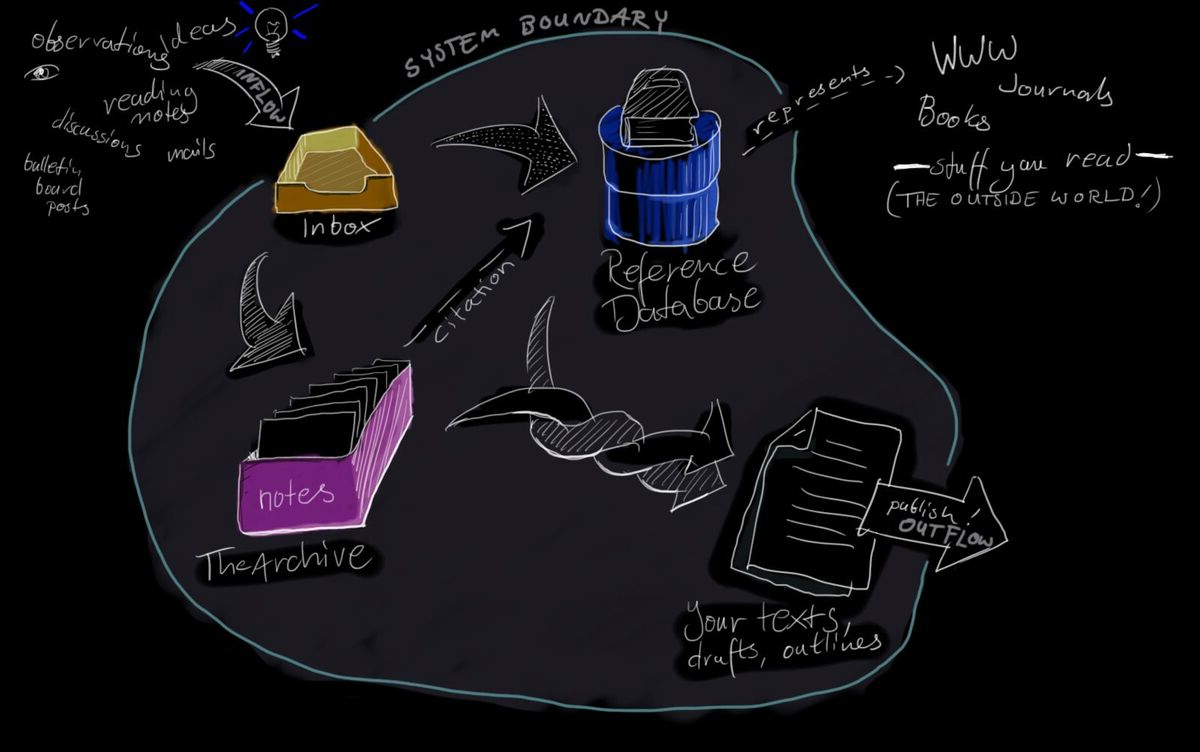 observations/
Ideas
reading
notes
discussions
mails
bulletin
board
posts
INFLOW
SYSTEM BOUNDARY
Inbox
represents
WWW
Journals
Books
— stuff you read —
(THE OUTSIDE WORLD!)
Reference
Database
citation
notes
The Archive
Your texts,
drafts, outlines
publish!
OUTFLOW